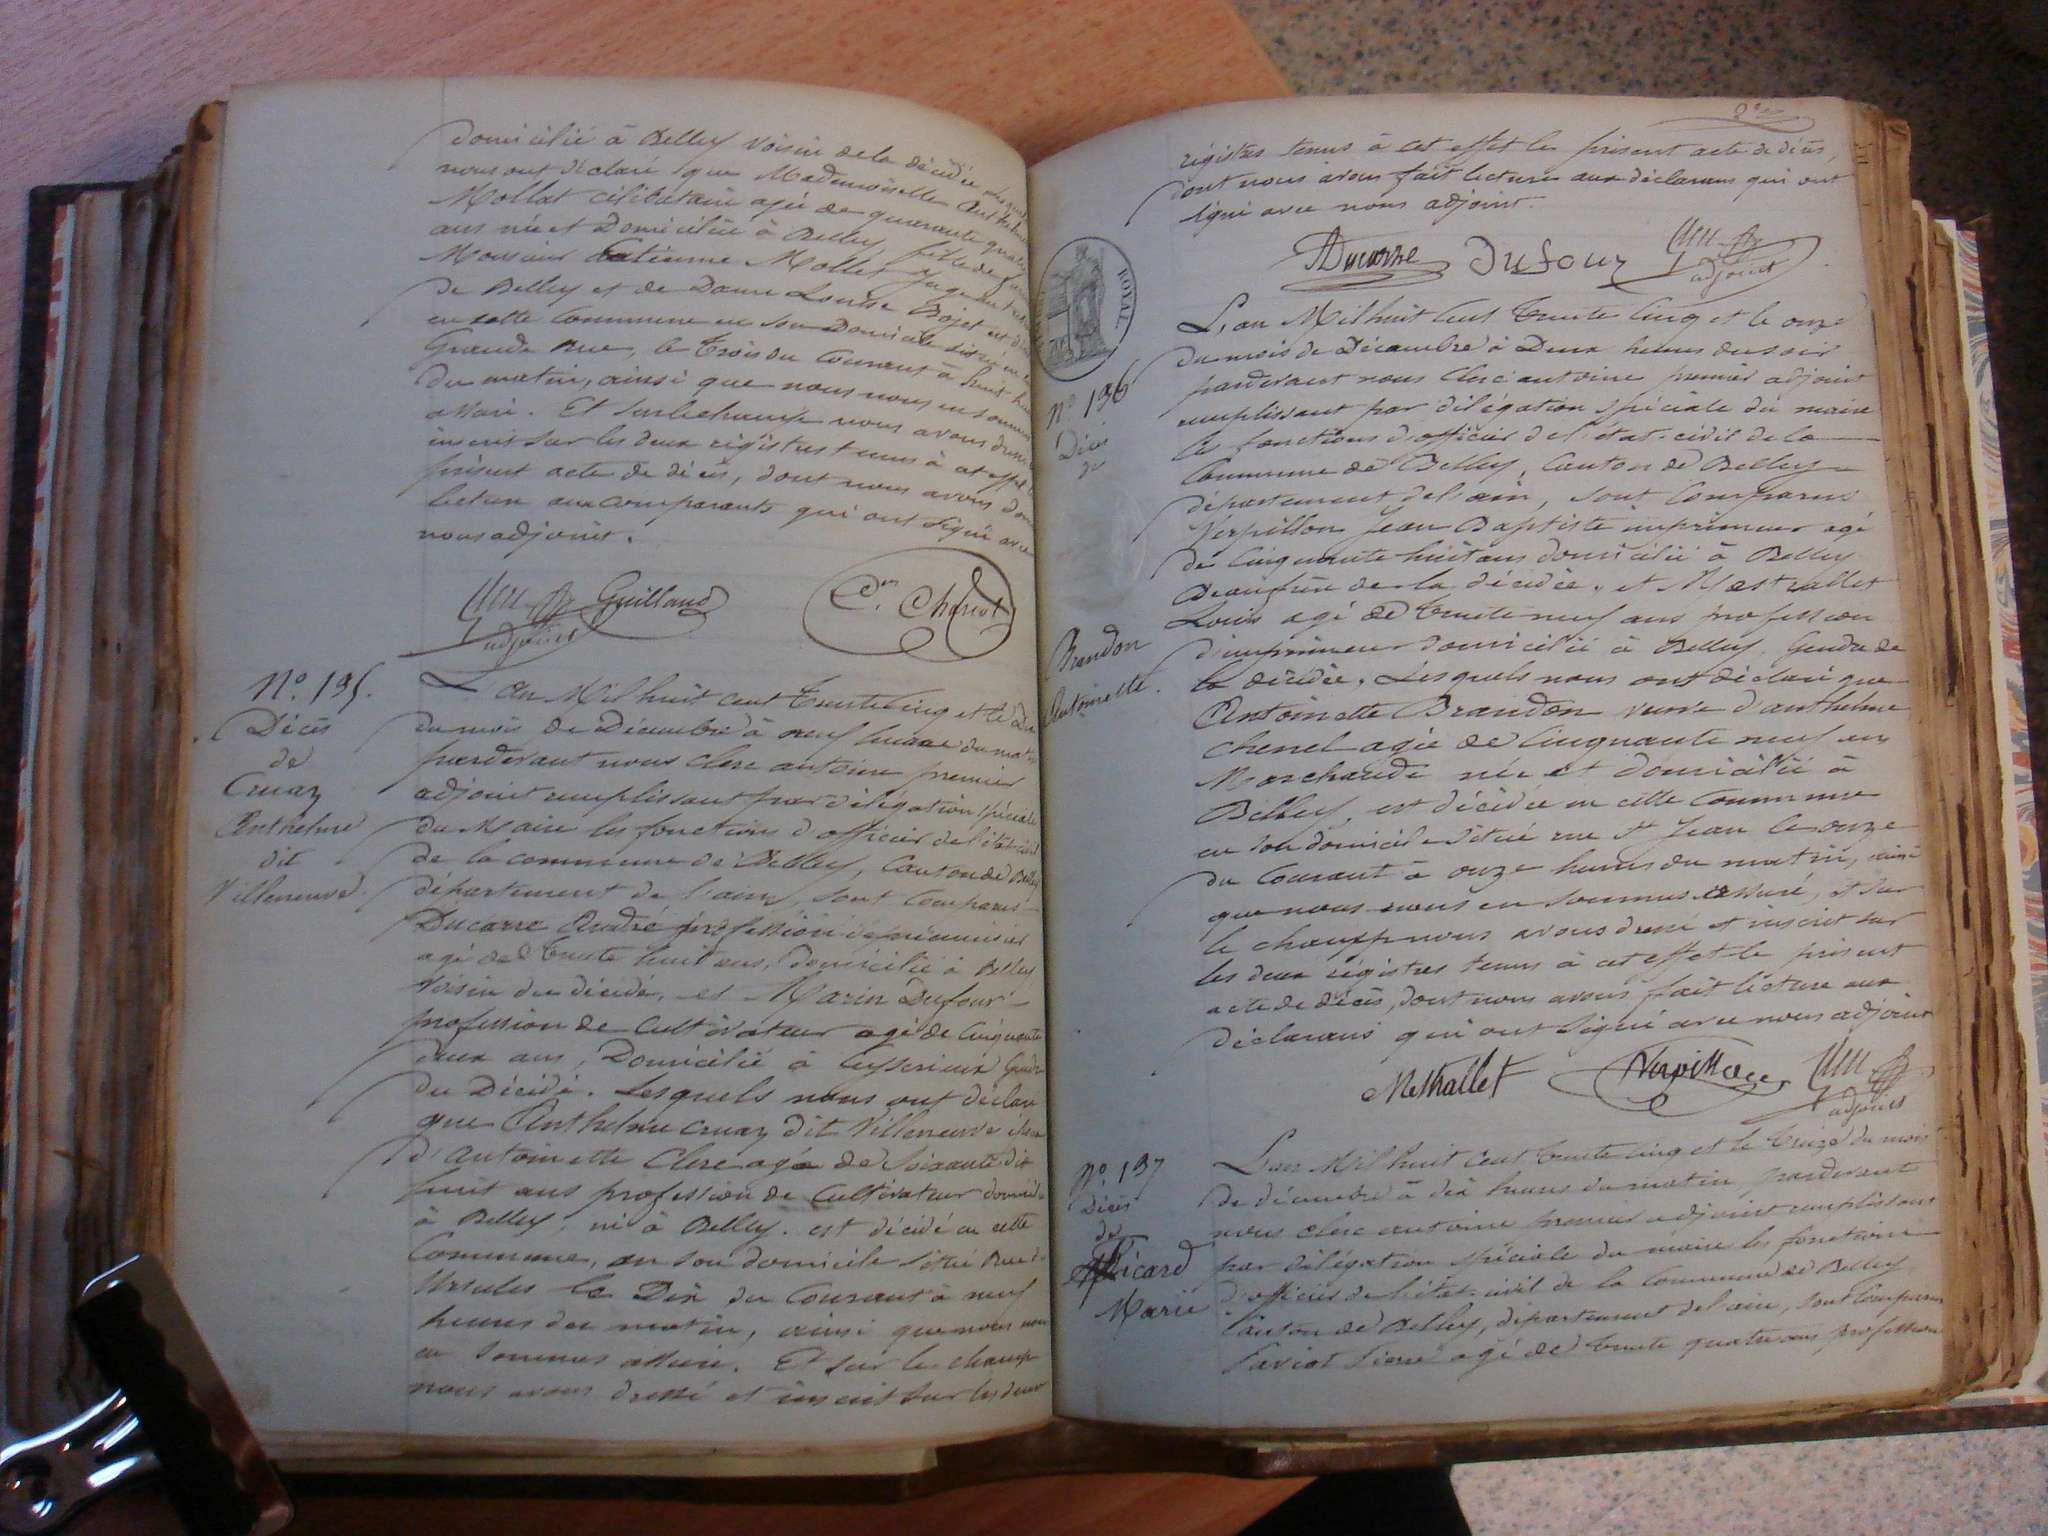 domicilié à Belley voisin de la décédée lesquels
nous ont déclaré que Mademoiselle Anthelmette
Mollet célibataire agée de quarante quatre
ans née et Domiciliée à Belley, fille de
Monsieur Catienne Mollet juge au
de Belley et de Dame Louise Bojet est
en cette Commune en son Domicile situé
Grande Rue, le trois du Courant à huit heures
du matin, ainsi que nous nous en sommes
assuré. Et sur le champ nous avons dressé
inscrit sur les deux régistres tenus à cet effet le
présent acte de décès, dont nous avons donné
lecture aux comparants qui ont signé avec
nous adjoint.
adjoint Guilland Chériot
N° 195.
Décès
de
Cruaz
Anthelme
dit
Villeneuve.
L'an Mil huit cent trente cinq et le
du mois de Décembre à neuf heures du matin
pardevant nous Clerc antoine premier
adjoint remplissant par délégation spéciale
du Maire les fonctions d'officier de l'état civil
de la commune de Belley, Canton de Belley
département de l'ain, sont comparus
Ducarre André profession de menuisier
agé de trente huit ans, domicilié à Belley
Voisin du décédé, et Marin Dufour
profession de Cultivateur agé de Cinquante
deux ans, Domicilié à Gendre
du Décédé. Lesquels nous ont déclaré
que Anthelme Cruaz dit Villeneuve
d'Antoinette Clerc agé de soixante dix
huit ans profession de Cultivateur domicilié
à Belley, né à Belley. est décédé en cette
Commune, en son domicile situé Rue
Ursules le Dix du Courant à neuf
heures du matin, ainsi que nous nous
en sommes assuré. Et sur le champ
nous avons dressé et inscrit sur les deux
régistres tenus à cet effet le présent acte de décès,
dont nous avons fait lecture aux déclarans qui ont
signé avec nous adjoint.
Ducarre Dufour adjoint
ROYAL
N° 196
Décès
de
Brandon
Antoinette.
L'an Mil huit Cent trente Cinq et le onze
du mois de Décembre à Deux heures du soir
pardevant nous Clerc antoine premier adjoint
remplissant par délégation spéciale du maire
les fonctions d'officier de l'état-civil de la
Commune de Belley, Canton de Belley
département de l'ain, sont Comparus
Verpillon Jean Baptiste imprimeur agé
de Cinquante huit ans domicilié à Belley
Beaufrère de la décédée, et Mestrallet
Louis agé de trente neuf ans profession
d'imprimeur domicilié à Belley. Gendre de
la décédée, Lesquels nous ont déclaré que
Antoinette Brandon veuve d'anthelme
Chenel agée de Cinquante neuf ans
Marchande née et domiciliée à
Belley, est décédée en cette Commune
en son domicile situé rue St Jean le onze
du Courant à onze heures du matin, ainsi
que nous nous en sommes assuré, et sur
le champ nous avons dressé et inscrit sur
les deux régistres tenus à cet effet le présent
acte de décès, dont nous avons fait lecture aux
déclarans qui ont signé avec nous adjoint
Mestrallet Verpillon adjoint
N° 197
Décès
de
Picard
Marie
L'an Mil huit Cent trente cinq et le treize du mois
de décembre à dix heures du matin, pardevant
nous Clerc antoine premier adjoint remplissant
par délégation spéciale du maire les fonctions
d'officier de l'état-civil de la Commune de Belley
Canton de Belley, département de l'ain, sont Comparus
Saviot Pierre agé de trente quatre ans profession